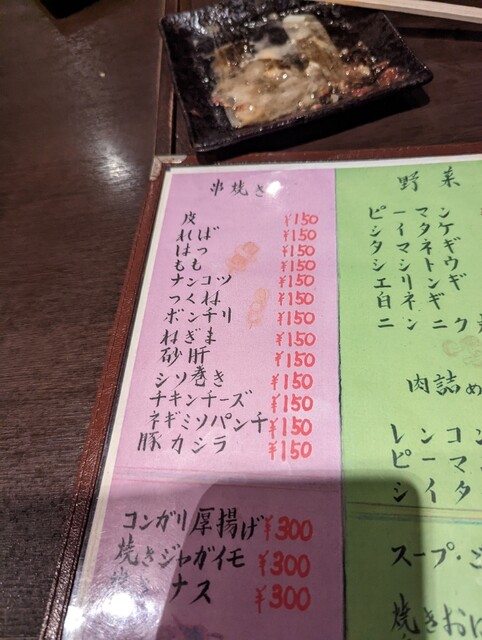 串焼き
皮 ¥150
れば ¥150
はつ ¥150
もも ¥150
ナンコツ ¥150
つくね ¥150
ボンチリ ¥150
ねぎま ¥150
砂肝 ¥150
シソ巻き ¥150
チキンチーズ ¥150
ネギミソパンチ ¥150
豚カシラ ¥150
コンガリ厚揚げ ¥300
焼きジャガイモ ¥300
焼きナス ¥300
野菜
ピーマン
シイタケ
シマネギ
エリンギ
白ネギ
ニンニク
肉詰め
レンコン
ピーマ
シイタ
スープ・ご
焼きおに